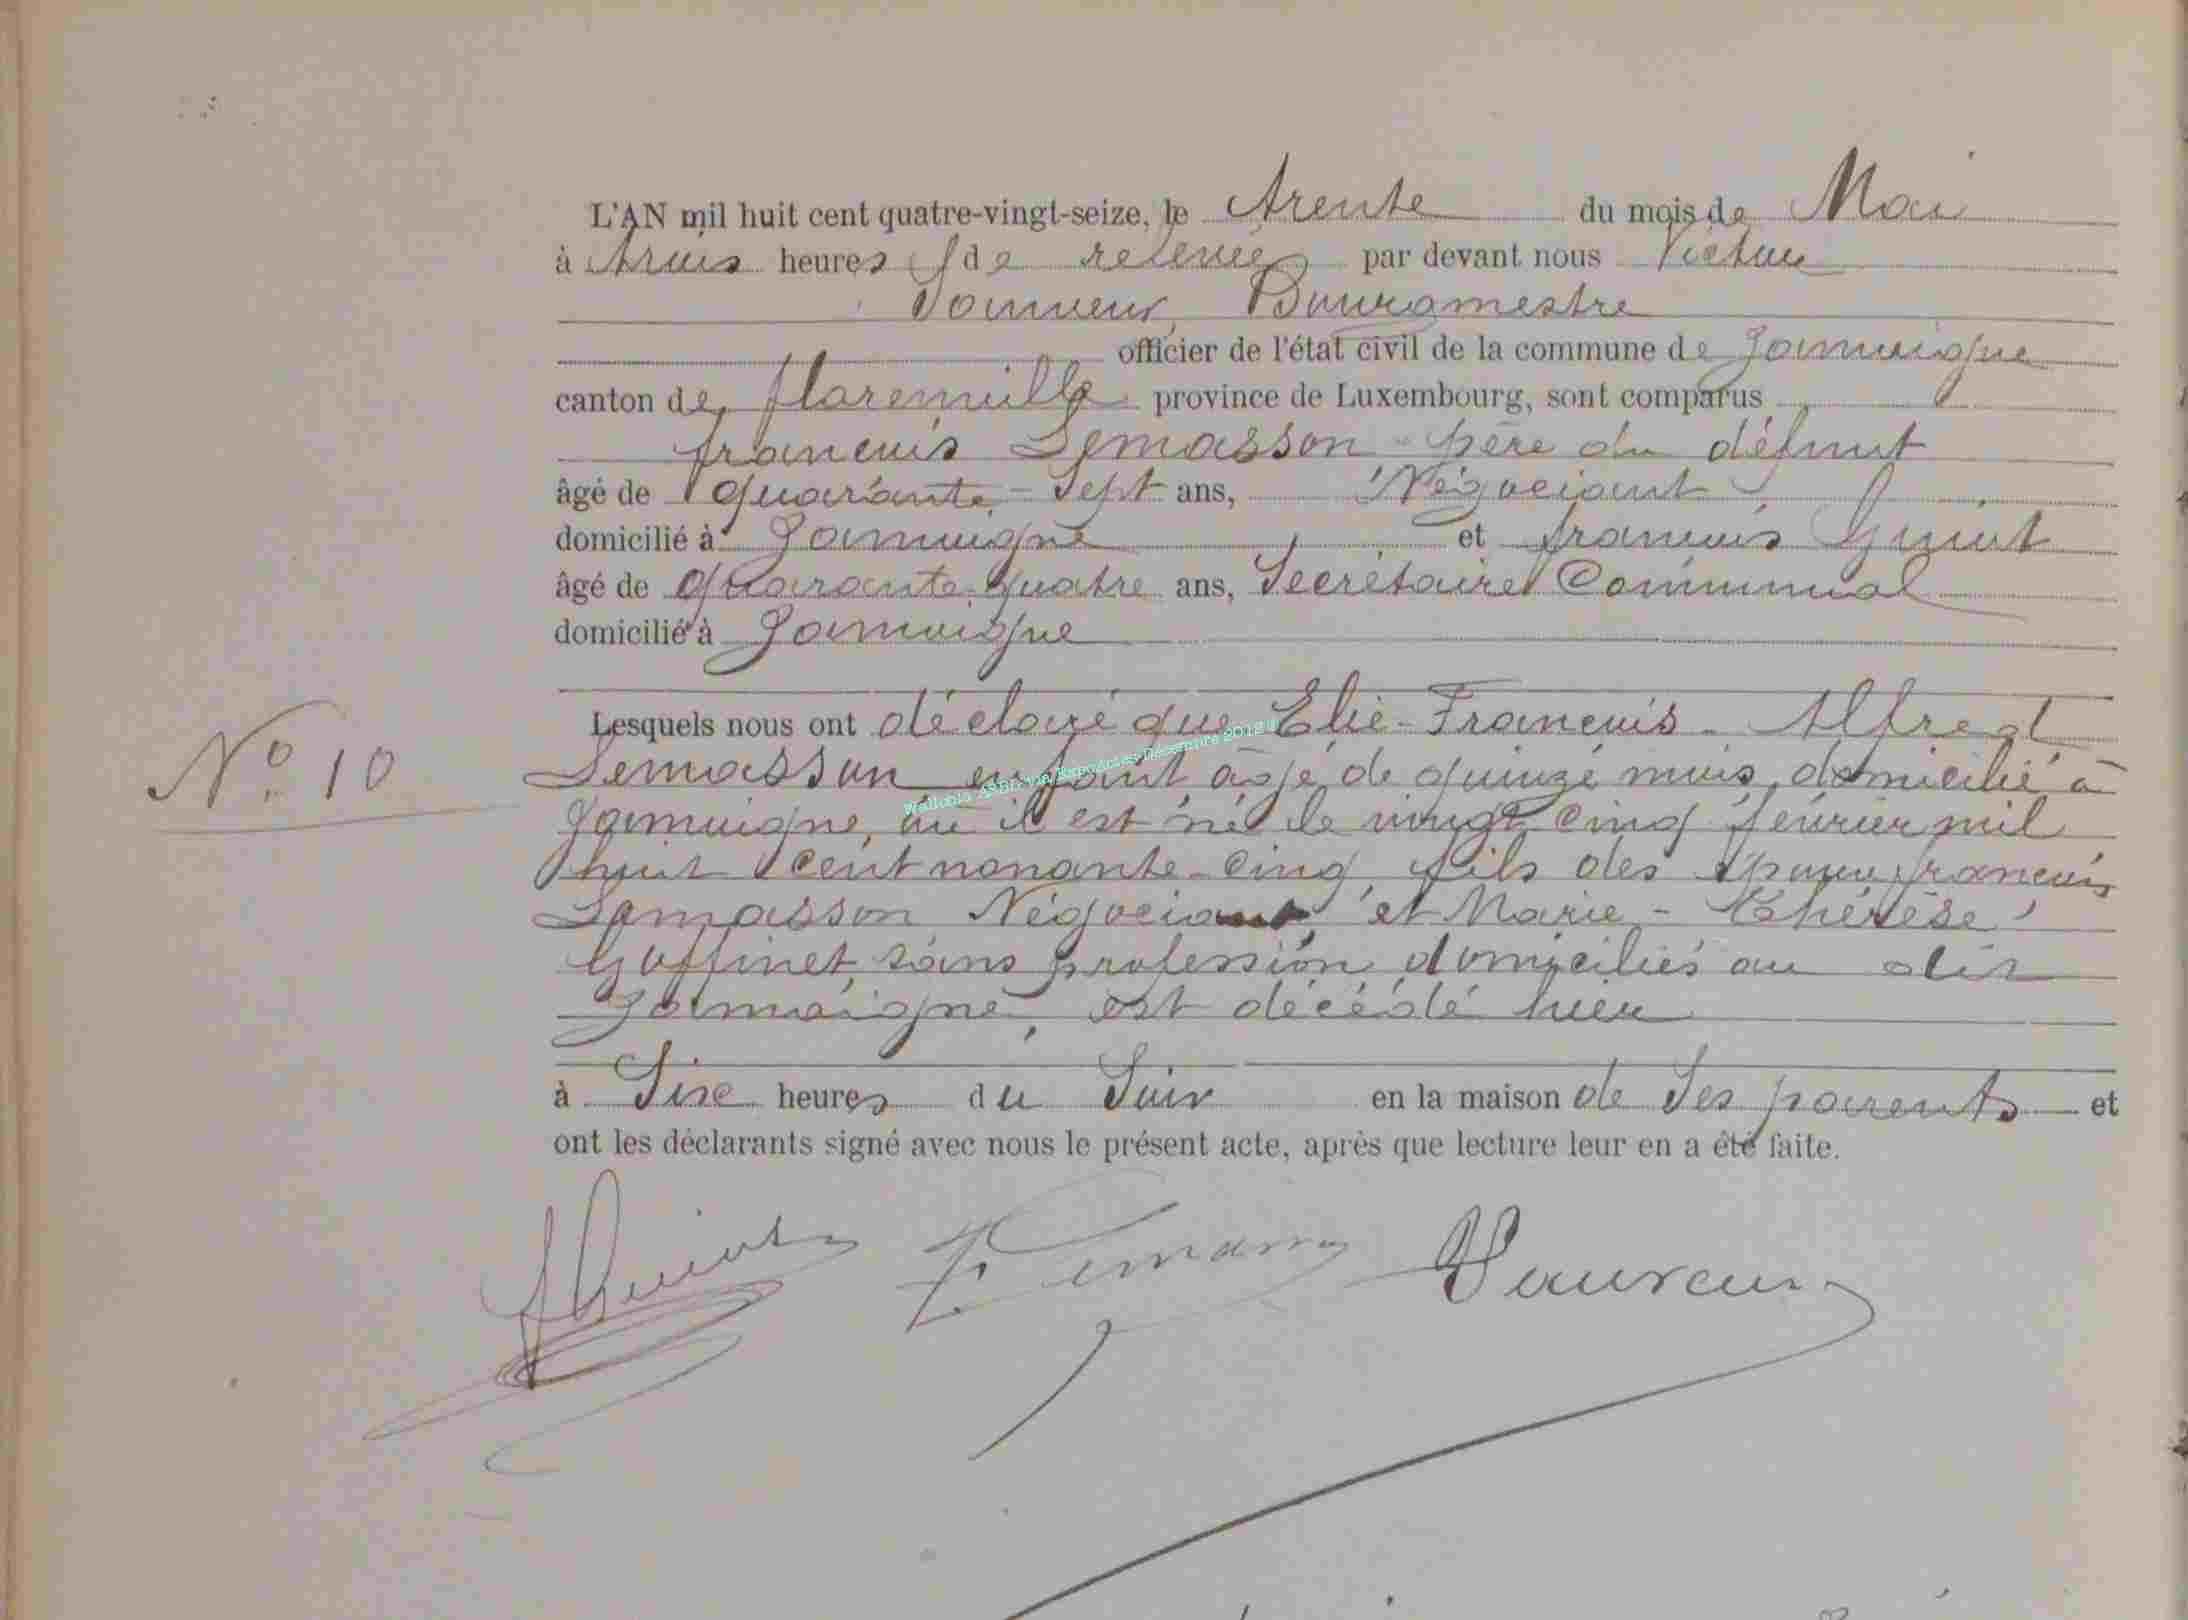 L'AN mil huit cent quatre-vingt-seize, le trente du mois de Mai
à trois heures de relevée par devant nous Victor
Bourgmestre
officier de l'état civil de la commune de Jamoigne
canton de florenville province de Luxembourg, sont comparus
françois Lemasson père du défunt
âgé de quarante-Sept ans, Négociant
domicilié à Jamoigne et françois Guiot
âgé de quarante-quatre ans, Secrétaire Communal
domicilié à Jamoigne
Lesquels nous ont déclaré que Elie-François-Alfred
N° 10
Lemasson enfant, âgé de quinze mois, domicilié à
Jamoigne, où il est né le vingt cinq février mil
huit cent nonante-cinq, fils des époux françois
Lemasson Négociant, et Marie-Thérèse
Goffinet, sans profession, domiciliés au dit
Jamoigne, est décédé hier
à Six heures du Soir en la maison de Ses parents et
ont les déclarants signé avec nous le présent acte, après que lecture leur en a été faite.
fGuiot F. Lemasson